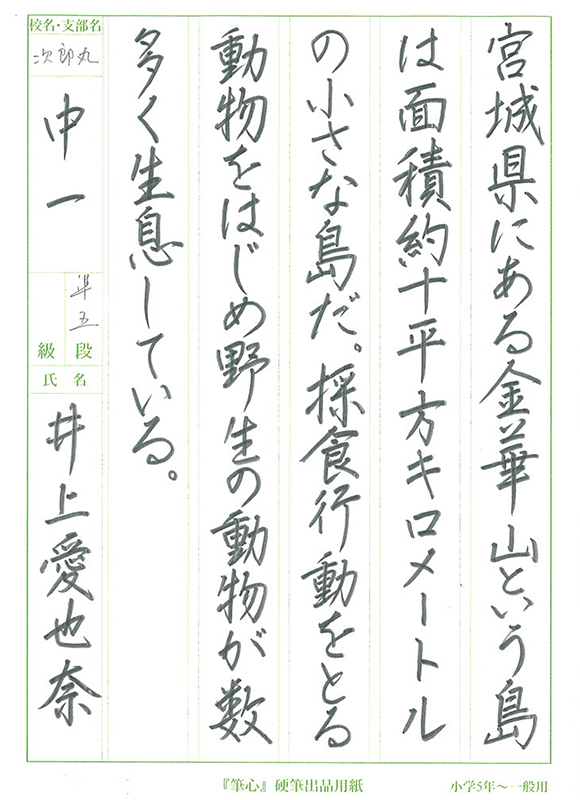 宮城県にある金華山という島
は面積約十平方キロメートル
の小さな島だ。採食行動をとる
動物をはじめ野生の動物が数
多く生息している。
校名・支部名
次郎丸
中一
段級
準五
氏名
井上愛也奈
『筆心』硬筆出品用紙
小学5年〜一般用